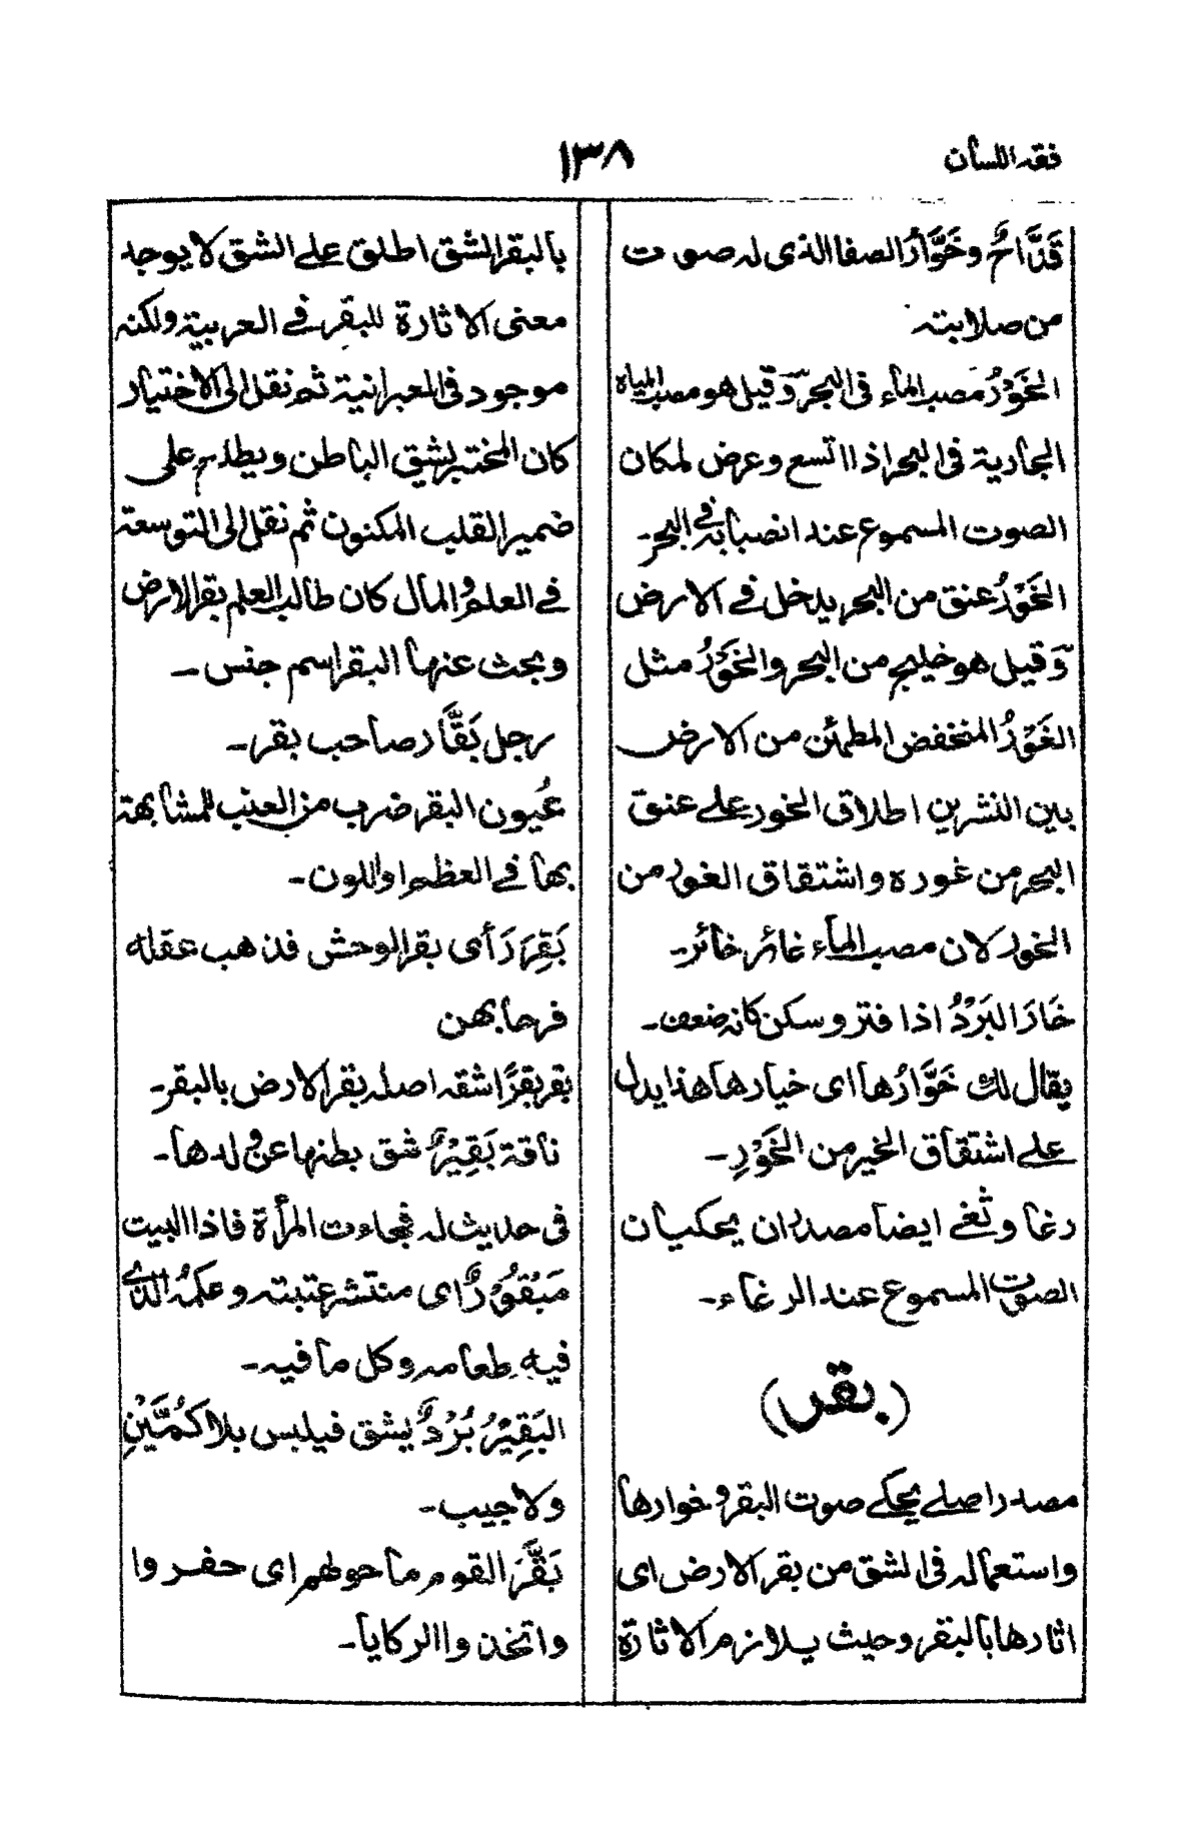 فقه اللسان
١٣٨
قَدَّاحٌ وخَوَّارُ الصفا الذى له صوت
من صلابته
الخَوْرُ مصب الماء فى البحر وقيل هو مصب المياه
الجارية فى البحر اذا اتسع وعرض لمكان
الصوت المسموع عند انصبابه فى البحر۔
الخَوْرُ عنق من البحر يدخل فى الارض
وقيل هو خليج من البحر والخَوْرُ مثل
الغَوْرُ المنخفض المطمئن من الارض
بين النشزين اطلاق الخور على عنق
البحر من غوره واشتقاق الغور من
الخور لان مصب الماء غائر خائر۔
خَارَ البَرْدُ اذا فتر وسكن كانه ضعف۔
يقال لك خَوَّارُها اى خيارها هذا يدل
على اشتقاق الخير من الخَوْرِ۔
رغا وثغى ايضا مصدران يحكيان
الصوت المسموع عند الرغاء۔
(بقر)
مصدر اصلى يحكى صوت البقر وخوارها
واستعماله فى الشق من بقر الارض اى
اثارها بالبقر وحيث يلازم الاثارة
بالبقر الشق اطلق على الشق لا يوجد
معنى الاثارة للبقر فى العربية ولكنه
موجود فى العبرانية ثم نقل الى الاختيار
كان المختبر يشق الباطن ويطلع على
ضمير القلب المكنون ثم نقل الى التوسعة
فى العلم والمال كان طالب العلم بقر الارض
وبحث عنها البقر اسم جنس ۔
رجل بَقَّار صاحب بقر۔
عُيون البقر ضرب من العنب للمشابهة
بها فى العظم او اللون۔
بَقِرَ رَأى بقر الوحش فذهب عقله
فرحا بهن
بقر بقرًا شقه اصله بقر الارض بالبقر۔
ناقة بَقِيْرٌ شق بطنها عن ولدها۔
فى حديث له فجاءت المرأة فاذا البيت
مَبْقُوْرٌ اى منتشر عتبته وعكمه الذى
فيه طعامه وكل ما فيه۔
البَقِيْرُ بُرْدٌ يشق فيلبس بلا كُمَّيْنِ
ولا جيب۔
بَقَّرَ القوم ما حولهم اى حفروا
واتخذوا الركايا۔